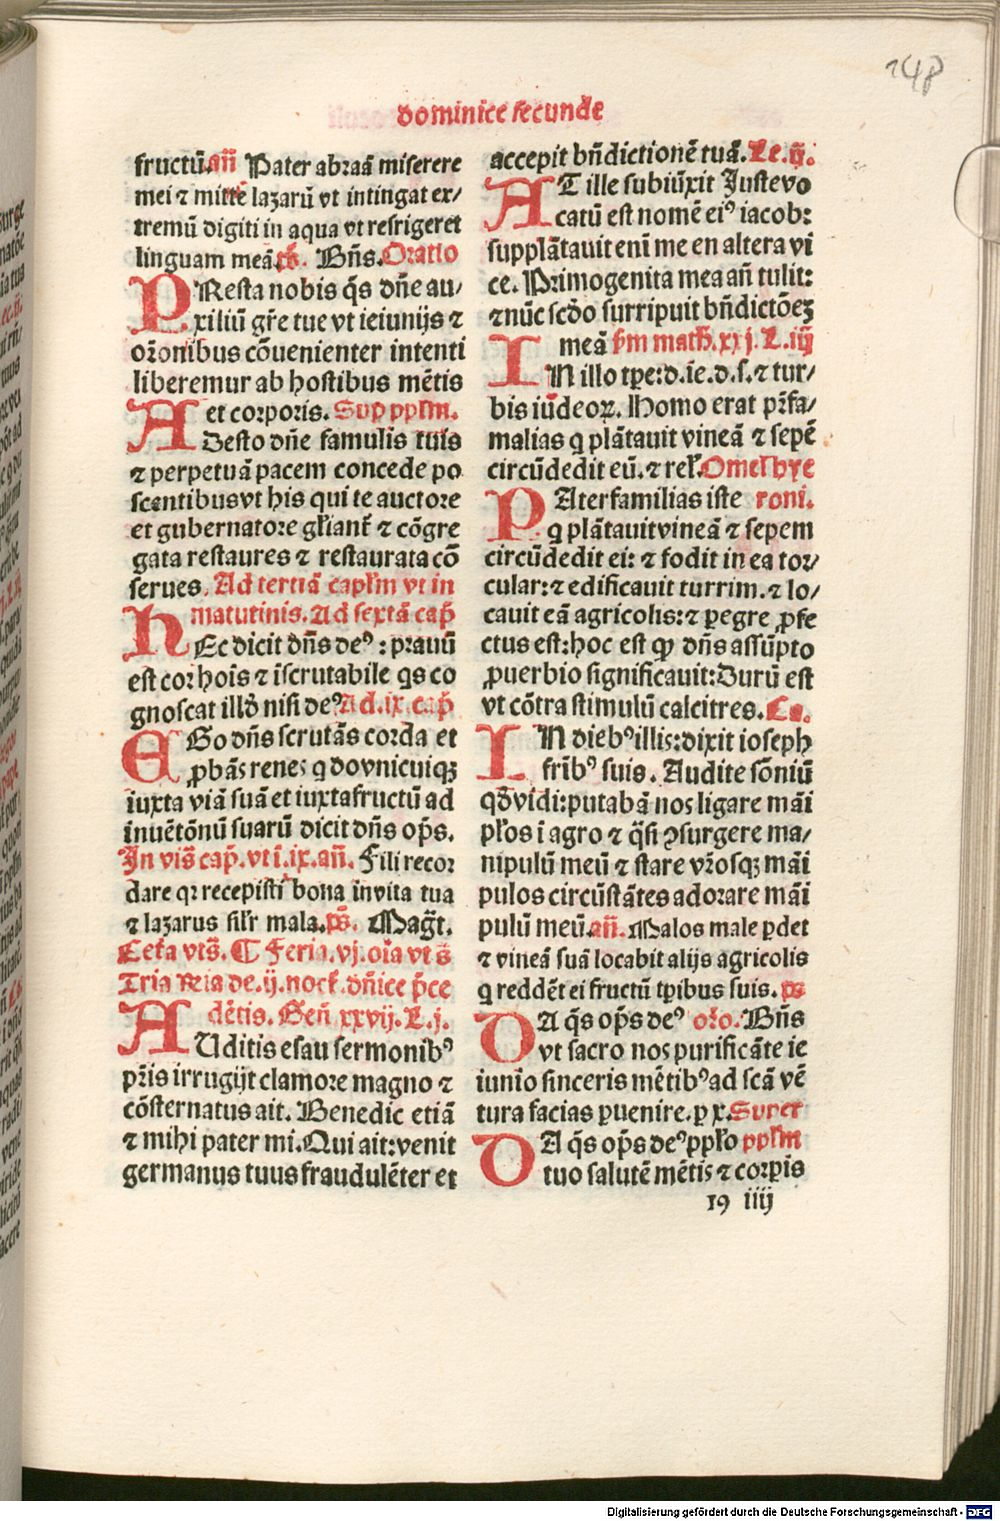 148
dominice secunde
fructū. añ Pater abraā miserere
mei ⁊ mitte lazarū vt intingat ex/
tremū digiti in aqua vt refrigeret
linguam meā. ps. Bñs. Oratio
PResta nobis q̄s dn̄e au/
xiliū gr̄e tue vt ieiunijs ⁊
or̄onibus cōuenienter intenti
liberemur ab hostibus mētis
et corporis. Sup pplm̄.
ADesto dn̄e famulis tuis
⁊ perpetuā pacem concede po
scentibus vt his qui te auctore
et gubernatore gl̄iant̄ ⁊ cōgre
gata restaures ⁊ restaurata cō
serues. Ad tertiā capl̄m vt in
matutinis. Ad sextā cap̄
HEc dicit dn̄s deꝰ: prauū
est cor hoīs ⁊ īscrutabile q̄s co
gnoscat illd̄ nisi deꝰ Ad. ix. cap̄
EGo dn̄s scrutās corda et
ꝓbās renes q do vnicuiqꝫ
iuxta viā suā et iuxta fructū ad
inuētōnū suarū dicit dn̄s op̄s.
In vis̄ cap̄. vt ī. ix. añ. Fili recor
dare qꝛ recepisti bona in vita tua
⁊ lazarus silr̄ mala. ps̄. Maḡt.
Cet̄a vts̄. ¶ Feria. vj. oīa vt s̄
Tria R̄ia de. ij. noct̄. dn̄ice p̄ce
dētis. Gen̄ xxvij. L. j.
AUditis esau sermonibꝰ
pr̄is irrugijt clamore magno ⁊
cōsternatus ait. Benedic etiā
⁊ mihi pater mi. Qui ait: venit
germanus tuus fraudulēter et
accepit bn̄dictionē tuā. Le. ij.
AT ille subiūxit Juste vo
catū est nomē eiꝰ iacob:
supplātauit enī me en altera vi
ce. Primogenita mea añ tulit:
⁊ nūc scd̄o surripuit bn̄dictōeꝫ
meā s̄m math. xxj. L. iij
IN illo tp̄e: d. ie. d. s. ⁊ tur/
bis iudeoꝝ. Homo erat pr̄fa/
malias q plātauit vineā ⁊ sepē
circūdedit eū. ⁊ rel̄. Omel̄ hye
PAterfamilias iste roni.
q plātauit vineā ⁊ sepem
circūdedit ei: ⁊ fodit in ea tor/
cular: ⁊ edificauit turrim. ⁊ lo/
cauit eā agricolis: ⁊ ꝑegre ꝓfe
ctus est: hoc est ꝙ dn̄s assūpto
ꝓuerbio significauit: Durū est
vt cōtra stimulū calcitres. Ca.
IN diebꝰ illis: dixit ioseph
fr̄ibꝰ suis. Audite sōniū
qd̄ vidi: putabā nos ligare māi
pl̄os ī agro ⁊ q̄si ꝯsurgere ma/
nipulū meū ⁊ stare vr̄osqꝫ māi
pulos circūstātes adorare māi
pulū meū. añ. Malos male ꝑdet
⁊ vineā suā locabit alijs agricolis
q reddēt ei fructū tp̄ibus suis. ps
DA q̄s op̄s deꝰ or̄o. Bñs
vt sacro nos purificāte ie
iunio sinceris mētibꝰ ad scā vē
tura facias ꝑuenire. ꝑ x. Super
DA q̄s op̄s deꝰ ppl̄o ppl̄m
tuo salutē mētis ⁊ corꝑis
19 iiij
Digitalisierung gefördert durch die Deutsche Forschungsgemeinschaft - DFG